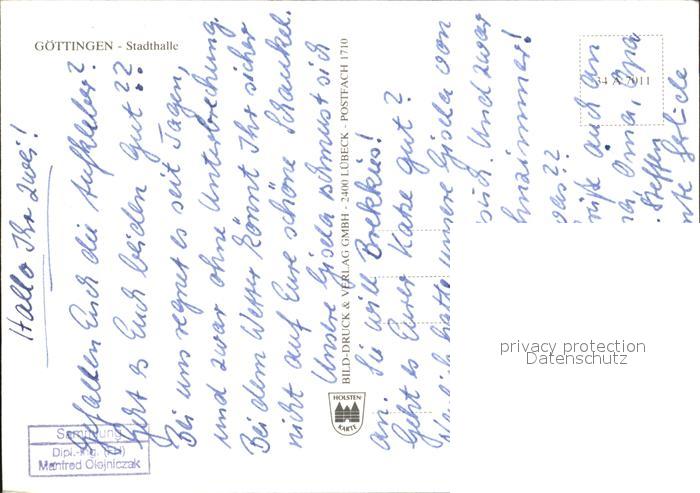 GÖTTINGEN - Stadthalle
Hallo Ihr zwei!
Gefallen Euch die Aufkleber?
Geht es Euch beiden gut??
Bei uns regnet es seit Tagen,
und zwar ohne Unterbrechung.
Bei dem Wetter könnt Ihr sicher
nicht auf Eure schöne Schaukel.
Unsere Gisela schmust sich
an. Sie will Brekkies!
Geht es Eurer Katze gut?
hatte unsere Gisela von
sich. Und zwar
auch an
Oma, Opa
Steffen
BILD-DRUCK & VERLAG GMBH - 2400 LÜBECK - POSTFACH 1710
34 A 7011
HOLSTEN
KARTE
privacy protection
Datenschutz
Sammlung
Dipl.-Ing. (FH)
Manfred Olejniczak